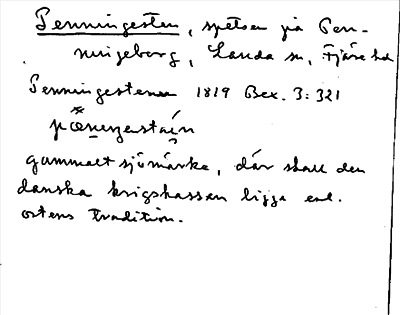 Penningesten, spetsen på Pen-
ningeberg, Landa sn, Fjäre hd
Penningestenen 1819 Bex. 3:321
pæneŋestaín
gammalt sjömärke, där skall den
danska krigskassan ligga enl.
ortens tradition.